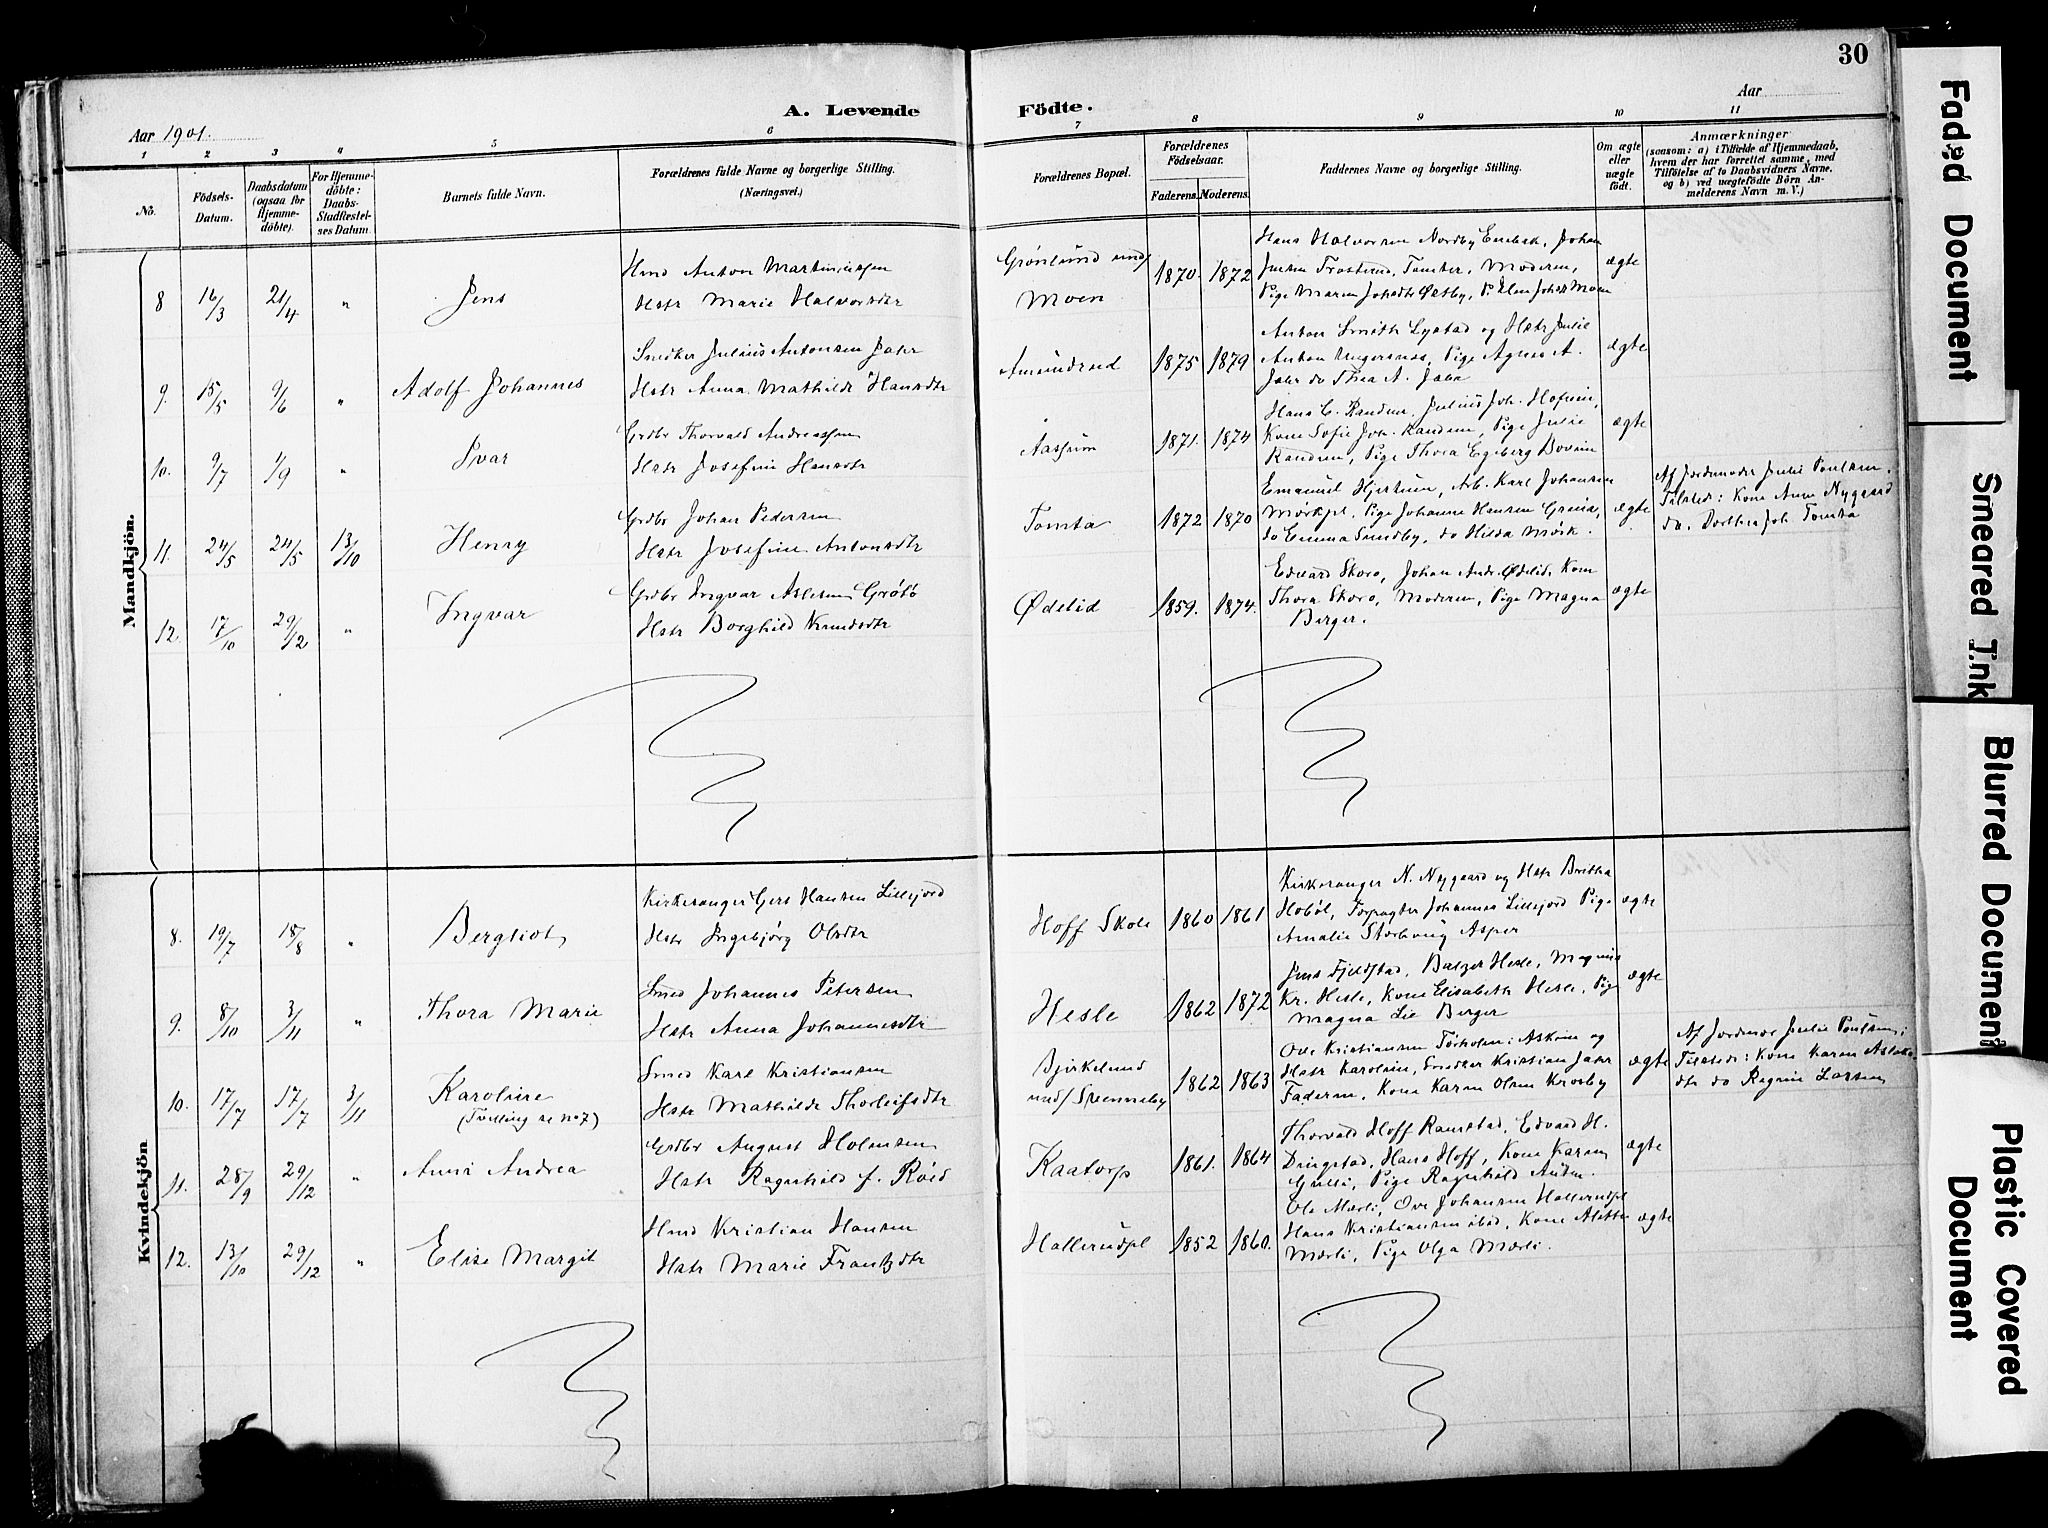 30
A. Levende Födte.
Aar 1901.
Aar
1 2 3 4 5 6 7 8 9 10 11
No.
Födsels-Datum.
Daabsdatum (ogsaa for Hjemmedöbte).
For Hjemmedöbte: Daabs-Stadfæstelses Datum.
Barnets fulde Navn.
Forældrenes fulde Navne og borgerlige Stilling.
(Næringsvei.)
Forældrenes Bopæl.
Forældrenes Födselsaar.
Faderens. Moderens.
Faddernes Navne og borgerlige Stilling.
Om ægte eller uægte födt.
Anmærkninger
(saasom: a) i Tilfælde af Hjemmedaab, hvem der har forrettet samme, med Tilföielse af to Daabsvidners Navne, og b) ved uægtefödte Börn Anmelderens Navn m. V.)
Mandkjön.
8 16/3 21/4 " Jens
Hmd Anton Martiniussen
Hstr Marie Halvorsdtr
Grönlund und/
Moen
1870 1872
Hans Halvorsen Nordby Enebak, Johan
Jensen Trosterud, Tomter, Moderen,
Pige Maren Johsdtr Østby, P. Elen Johsdtr Moen
ægte
9. 15/5 9/6 " Adolf Johannes
Snedker Julius Antonsen Jahr
Hstr Anna Mathilde Hansdtr
Amundrud
1875 1879
Anton Smith Lystad og Hstr Julie
Anton Ungersnes, Pige Agnes A.
Jahr do Thea A. Jahr
ægte
10. 9/7 1/9 " Ivar
Grdbr Thorvald Andreassen
Hstr Josefine Hansdtr
Aasjum
1871. 1874
Hans C. Randem, Julius Joh. Hofsim,
Kone Sofie Joh. Randem, Pige Julie
Randem, Pige Thora Egeberg Bovim
ægte
11. 24/5 24/5 13/10 Henry
Grdbr Johan Pedersen
Hstr Josefine Antonsdtr
Tomta
1872 1870
Emanuel Hjertum, Arb. Karl Johansen
Mörkpl. Pige Johanne Hansen Greina,
do Emma Sundby, do Hilda Mörk.
ægte
Af Jordmoder Julie Poulsen.
Tilstede: Kone Anne Nygaard
do. Dorthea Joh Tomta
12. 17/10 29/12 " Ingvar
Grdbr Ingvar Aslesen Gröto
Hstr Borghild Knudsdtr
Ødelid
1859. 1874.
Edvard Skoro, Johan Andr. Ødelid, Kone
Thora Skoro, Moderen, Pige Magna
Berger.
ægte
Kvindekjön
8. 19/7 18/8 " Bergliot
Kirkesanger Gert Hansen Lillejord
Hstr Ingebjörg Olsdtr
Hoff Skole
1860 1861
Kirkesanger N. Nygaard og Hstr Britha
Hoböl, Forpagter Johannes Lillejord Pige
Amalie Storhoug Asper
ægte
9. 8/10 3/11 " Thora Marie
Smed Johannes Petersen
Hstr Anna Johannesdtr
Hesle
1862 1872
Jens Fjeldstad, Balzer Hesle, Magnus
Kr. Hesle, Kone Elisabeth Hesle, Pige
Magna Lie Berger
ægte
10. 17/7 17/7 3/11 Karoline
(Tvilling se no 7)
Smed Karl Kristiansen
Hstr Mathilde Thorleifsdtr
Bjirkelund
und/ Svenneby
1862 1863
Ove Kristiansen Törholm: Askim og
Hstr Karoline, Snedker Kristian Jahr
Faderen, Kone Karen Olsen Krosby
ægte
Af Jordmor Julie Poulsen;
Tilstede: Kone Karen Aslaks
dtr do Ragine Larsen
11. 28/9 29/12 " Anni Andrea
Grdbr August Holmsen
Hstr Ragnhild f. Röed
Kaatorp
1861. 1864
Thorvald Hoff Ramstad, Edvard H.
Dingstad, Hans Hoff, Kone Karen
Gulli, Pige Ragnhild Anden.
ægte
12. 13/10 29/12 " Elise Margit
Hmd Kristian Hansen
Hstr Marie Frantzdtr
Hallerudpl
1852 1860.
Ole Mærli, Ove Johansen Hallerudpl
Hans Kristiansen ibid, Kone Alette
Mærli, Pige Olga Mærli.
ægte
Faded Document
Smeared Ink
Blurred Document
Plastic Covered Document